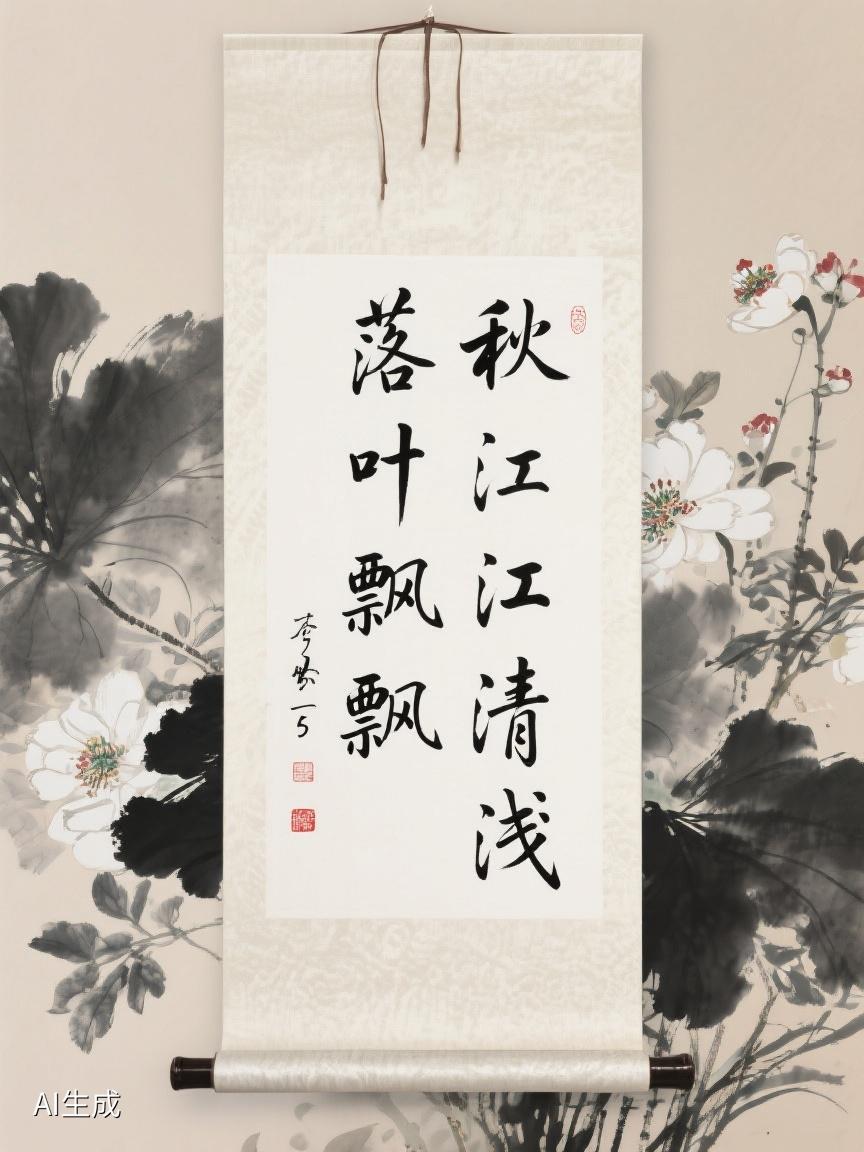 秋江江清浅
落叶飘飘
AI生成